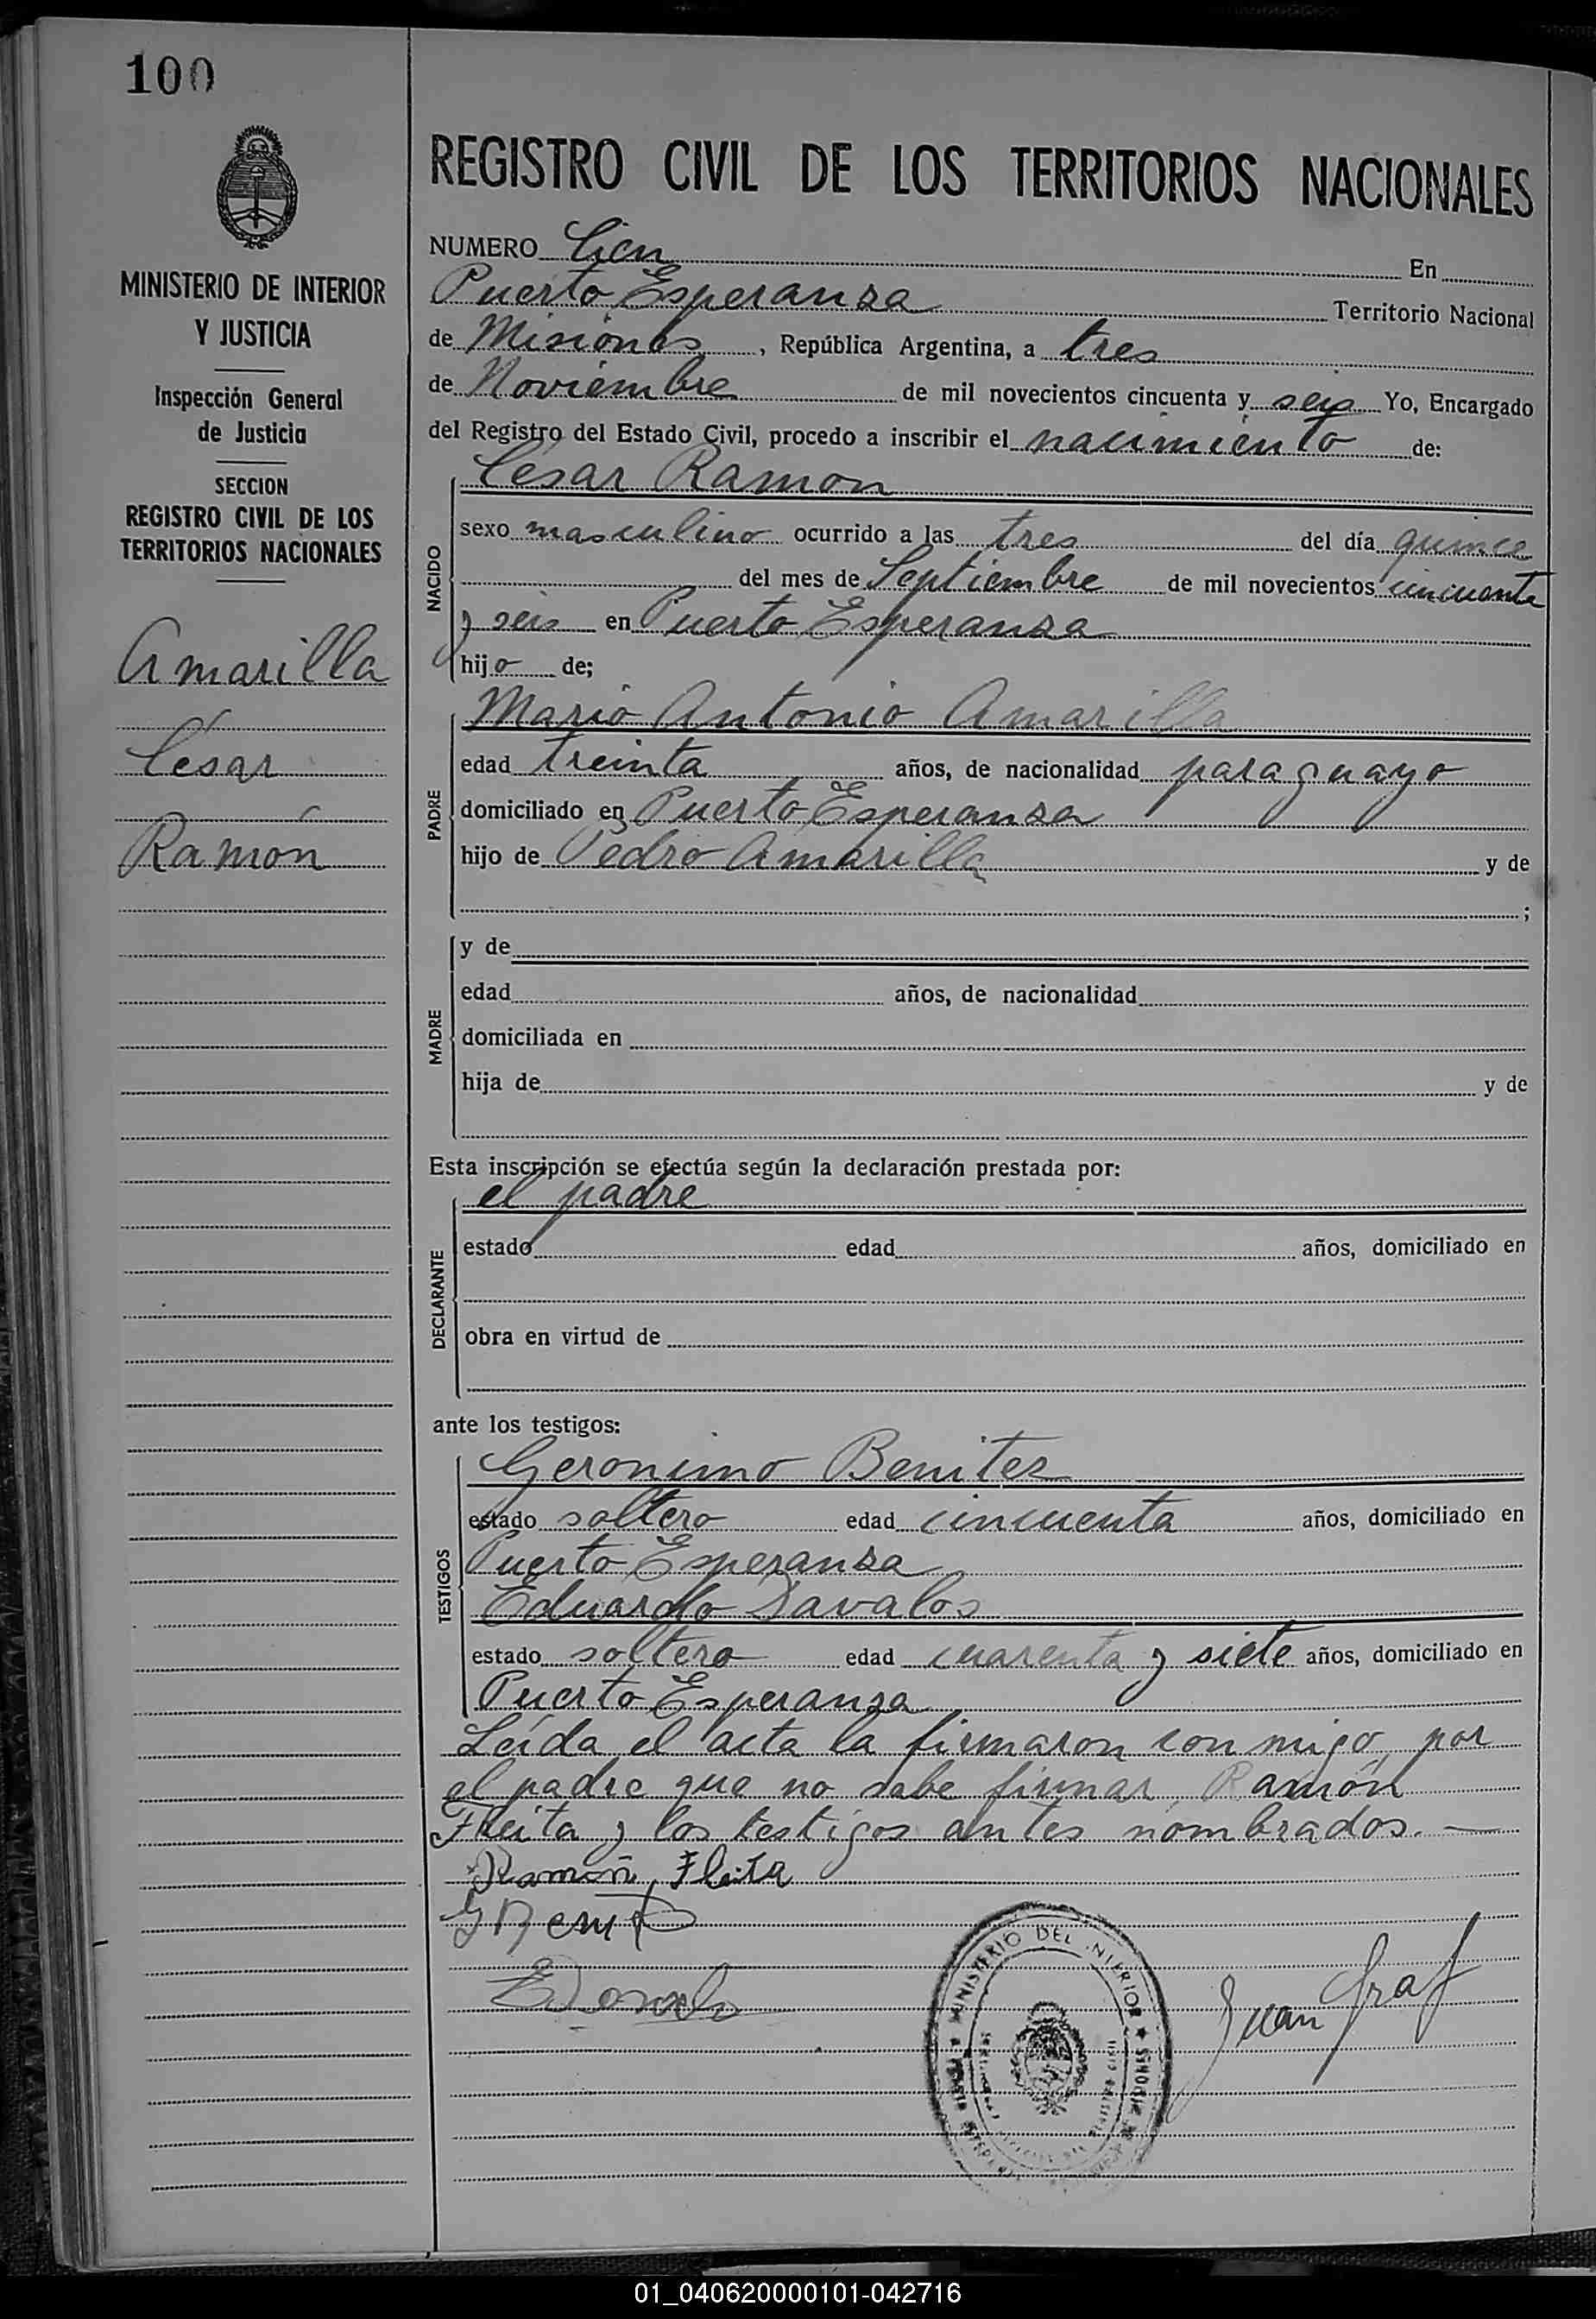 100
MINISTERIO DE INTERIOR
Y JUSTICIA
Inspección General
de Justicia
SECCION
REGISTRO CIVIL DE LOS
TERRITORIOS NACIONALES
Amarilla
César
Ramón
REGISTRO CIVIL DE LOS TERRITORIOS NACIONALES
NUMERO Cien En
Puerto Esperanza Territorio Nacional
de Misiones, República Argentina, a tres
de Noviembre de mil novecientos cincuenta y seis Yo, Encargado
del Registro del Estado Civil, procedo a inscribir el nacimiento de:
NACIDO
César Ramon
sexo masculino ocurrido a las tres del día quince
del mes de Septiembre de mil novecientos cincuenta
y seis en Puerto Esperanza
hijo de;
PADRE
Mario Antonio Amarilla
edad treinta años, de nacionalidad paraguayo
domiciliado en Puerto Esperanza
hijo de Pedro Amarilla y de
;
MADRE
y de
edad años, de nacionalidad
domiciliada en
hija de y de
Esta inscripción se efectúa según la declaración prestada por:
DECLARANTE
el padre
estado edad años, domiciliado en
obra en virtud de
ante los testigos:
TESTIGOS
Geronimo Benitez
estado soltero edad cincuenta años, domiciliado en
Puerto Esperanza
Eduardo Davalos
estado soltero edad cuarenta y siete años, domiciliado en
Puerto Esperanza
Leída el acta la firmaron conmigo, por
el padre que no sabe firmar, Ramón
Fleita y los testigos antes nombrados.—
Ramón Fleita
MINISTERIO DEL INTERIOR ★ MISIONES
Juan Graf
01_040620000101-042716